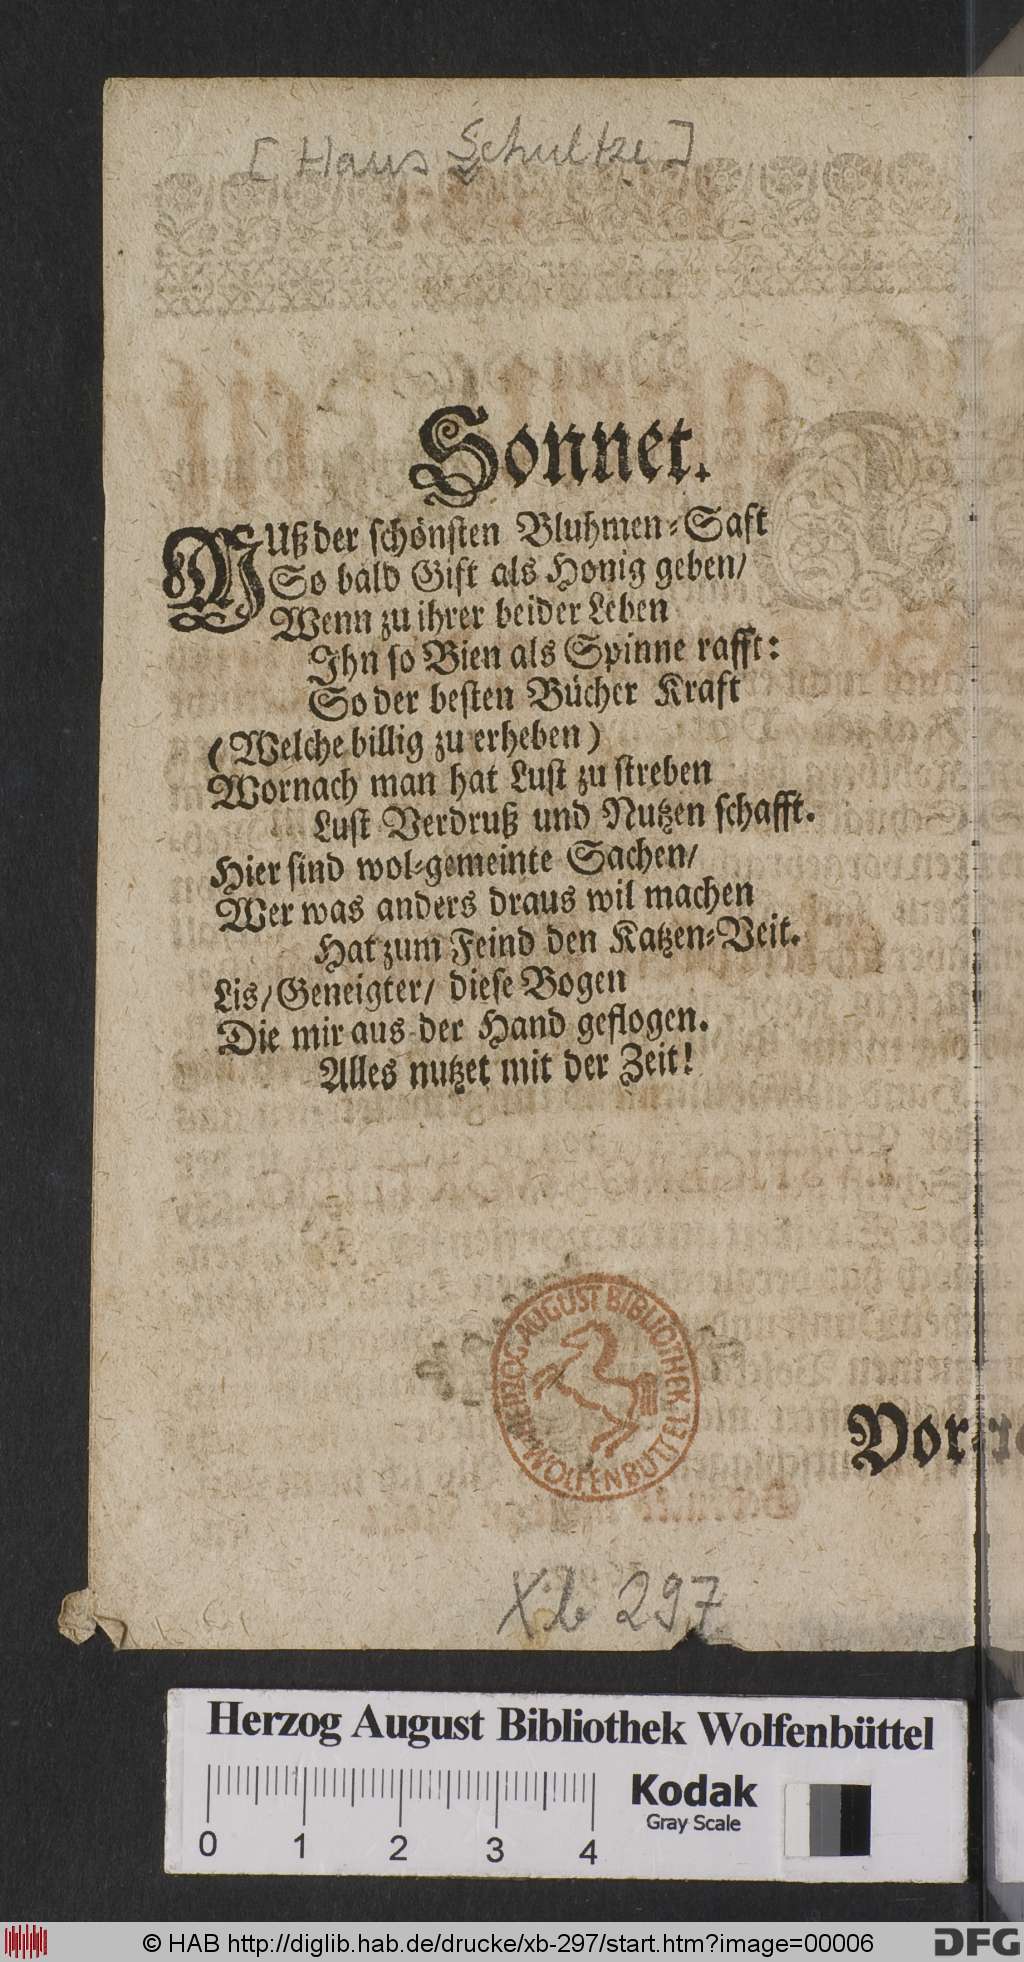 [Hans Schultze]
Sonnet.
MUß der schönsten Bluhmen-Saft
So bald Gift als Honig geben/
Wenn zu ihrer beider Leben
Ihn so Bien als Spinne rafft:
So der besten Bücher Kraft
(Welche billig zu erheben)
Wornach man hat Lust zu streben
Lust Verdruß und Nutzen schafft.
Hier sind wol-gemeinte Sachen/
Wer was anders draus wil machen
Hat zum Feind den Katzen-Veit.
Lis/ Geneigter/ diese Bogen
Die mir aus der Hand geflogen.
Alles nutzet mit der Zeit!
HERZOG AUGUST BIBLIOTHEK
WOLFENBÜTTEL
Vor-re
Xb 297
Herzog August Bibliothek Wolfenbüttel
Kodak
Gray Scale
0 1 2 3 4
© HAB http://diglib.hab.de/drucke/xb-297/start.htm?image=00006
DFG